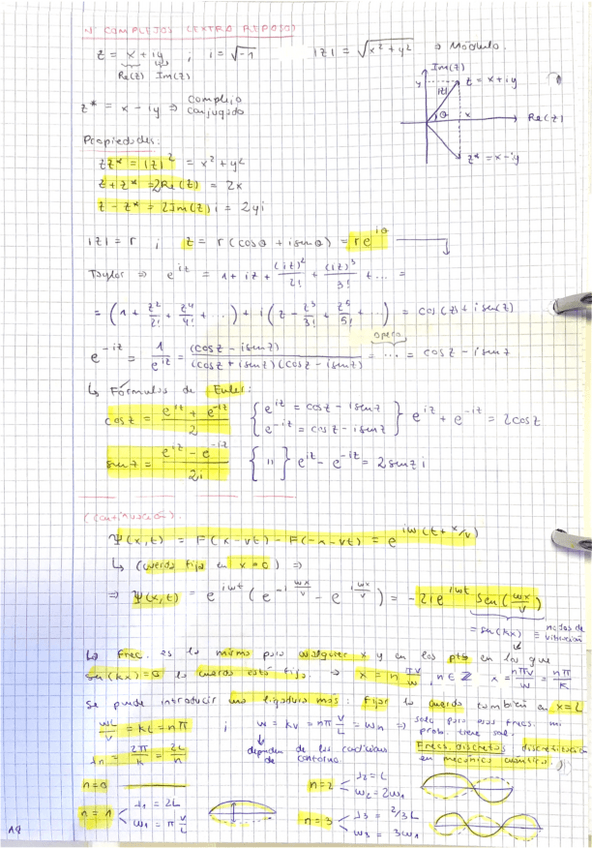 Nº COMPLEJOS (EXTRO REPOSO)
z = x + iy ; i = √-1    |z| = √x²+y² → Módulo.
Re(z) Im(z)
Im(z)
y
z = x+iy
|z|
θ
x
Re(z)
z* = x-iy
z* = x - iy ⇒ complejo conjugado
Propiedades:
zz* = |z|² = x²+y²
z + z* = 2Re(z) = 2x
z - z* = 2Im(z)i = 2yi
|z| = r ; z = r(cosθ + isenθ) = re^iθ
Taylor ⇒ e^iz = 1 + iz + (iz)²/2! + (iz)³/3! + ... =
= (1 + z²/2! + z⁴/4! + ...) + i(z + z³/3! + z⁵/5! + ...) = cos(z) + isen(z)
e^-iz = 1/e^iz = (cosz - isenz)/(cosz + isenz)(cosz - isenz) = ... = cosz - isenz
opero
↳ Fórmulas de Euler:
cosz = (e^iz + e^-iz)/2 { e^iz = cosz - isenz
e^-iz = cosz - isenz } e^iz + e^-iz = 2cosz
senz = (e^iz - e^-iz)/2i { " } e^iz - e^-iz = 2senz i
(continuación).
Ψ(x,t) = F(x-vt) - F(-x-vt) = e^iw(t+x/v)
↳ (cuerda fija en x=0) ⇒
⇒ Ψ(x,t) = e^iwt (e^-i wx/v - e^i wx/v) = -2i e^iwt sen(wx/v)
= sen(kx) ≡ modos de vibración
↳ Frec. es la misma para cualquier x y en los ptos en los que
sen(kx)=0 la cuerda está fija. ⇒ x = n πv/w, n∈Z  x = nπv/w = nπ/k
Se puede introducir una ligadura más: fijar la cuerda también en x=L
wL/v = kL = nπ ; w = kv = nπ v/L = wn ⇒ solo para esas frecs. mi prob. tiene sol.
λn = 2π/k = 2L/n
dependen de las condiciones de contorno
Frecs. discretas (discretización en mecánica cuántica).
n=0
n=1 λ1 = 2L
w1 = π v/L
n=2 λ2 = L
w2 = 2w1
n=3 λ3 = 2/3 L
w3 = 3w1